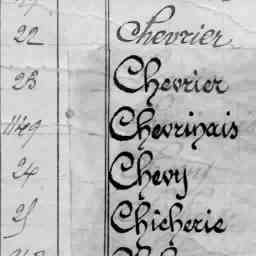 22 Chevrier
23 Chevrier
1149 Chevrinais
24 Chevy
25 Chicherie